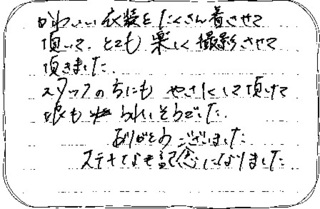 かわいい衣装をたくさん着させて
頂いて、とても楽しく撮影させて
頂きました
スタッフの方にも やさしくして頂けて
娘も うれしそうでした
ありがとうございました
ステキな記念になりました